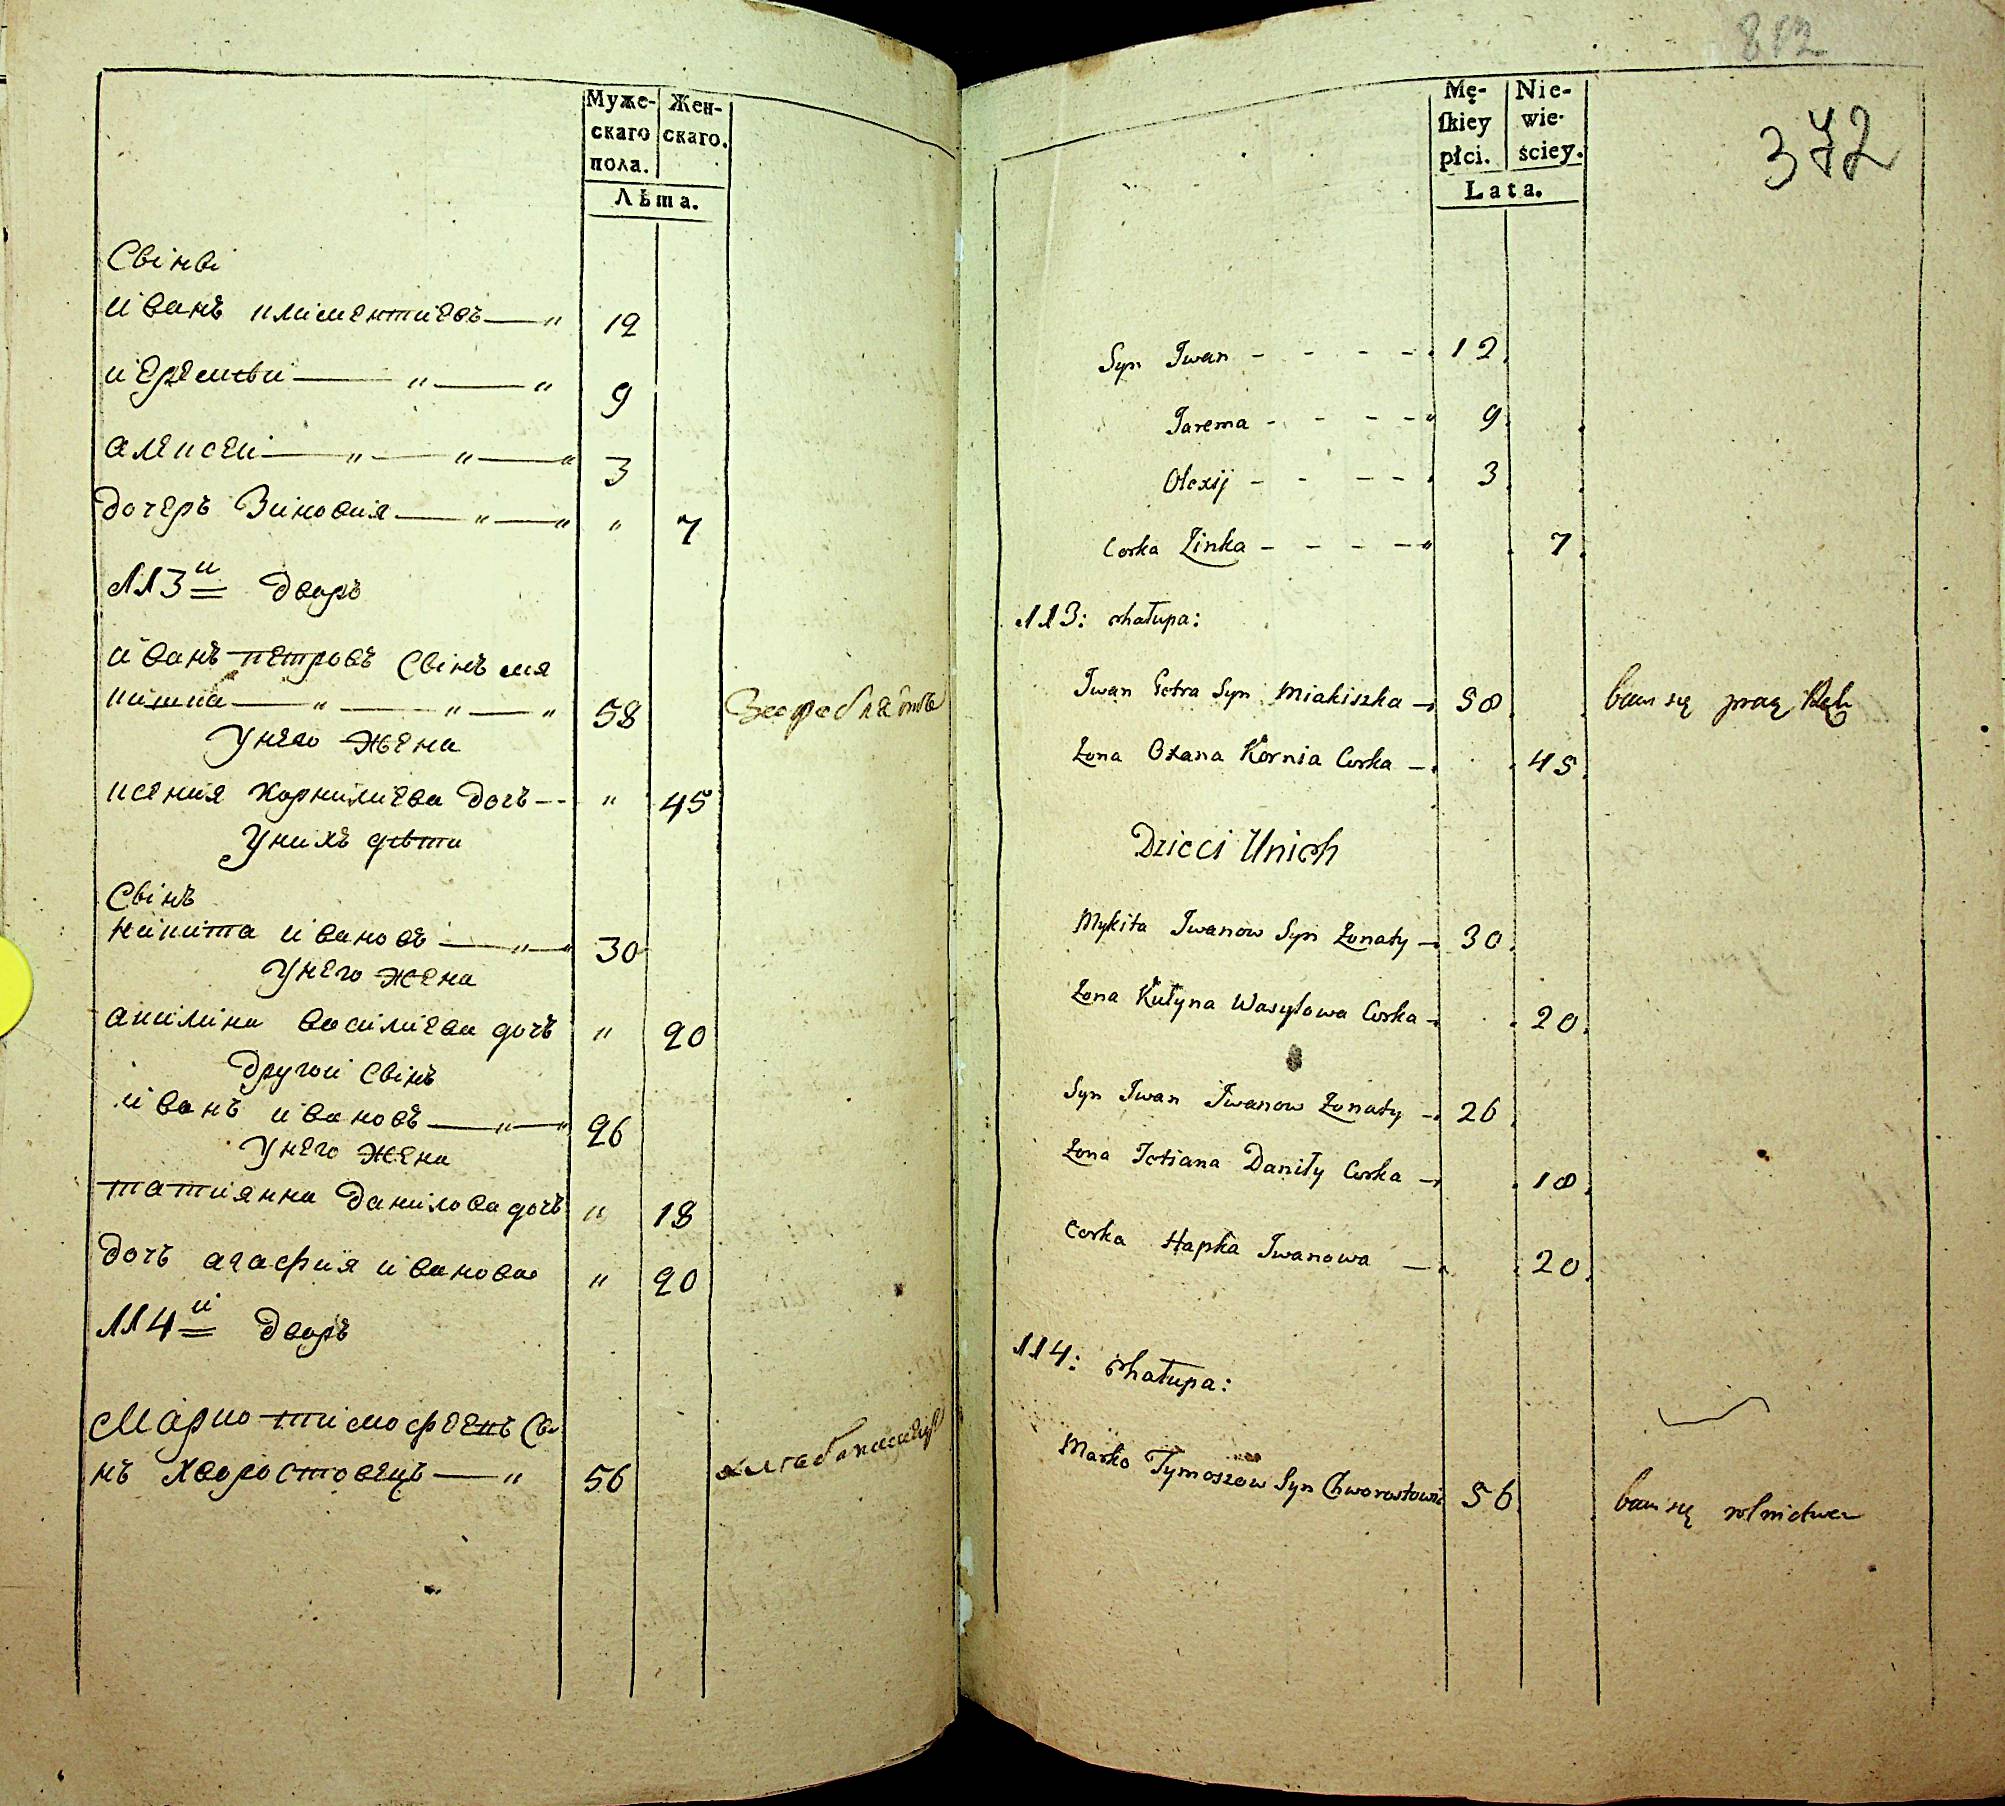 Муже-скаго пола. Жен-скаго.
Лѣта.
Свінві
иванъ климентиевъ — " 12
иеремѣи — " — " 9
алексеи — " — " — " 3
дочеръ Зиновия — " — " " 7
113й дворъ
иванъ петровъ Свінъ мя
кишка — " — " — " 58
Унево жена
ксения корнилиева дочъ - - " 45
Унихъ дѣти
Свінъ
никита ивановъ — " — " 30
Унего жена
акилина василиева дочъ " 20
другои Свінъ
иванъ ивановъ — " — " 26
Унего жена
татиянна данилова дочъ " 18
дочъ агафия иванова " 20
114й дворъ
Марко тимофеевъ Сві
нъ хворостовецъ — " 56
812
372
Mę-skiey płci. Nie-wie-ściey.
Lata.
Syn Iwan - - - - 12
Jarema - - - - " 9
Olexij - - - - 3
Corka Zinka - - - - " 7
113: chałupa:
Iwan Petra Syn Miakiszka — 58 bawi się pracą Rąk
Żona Oxana Kornia Corka — 45
Dzieci Unich
Mykita Iwanow Syn Żonaty — 30
Żona Kułyna Wasylowa Corka — 20
Syn Iwan Iwanow Żonaty — 26
Żona Tetiana Daniły Corka — 18
Corka Hapka Iwanowa — 20
114: chałupa:
Marko Tymoszow Syn Chworostowic 56 bawi się rolnictwem